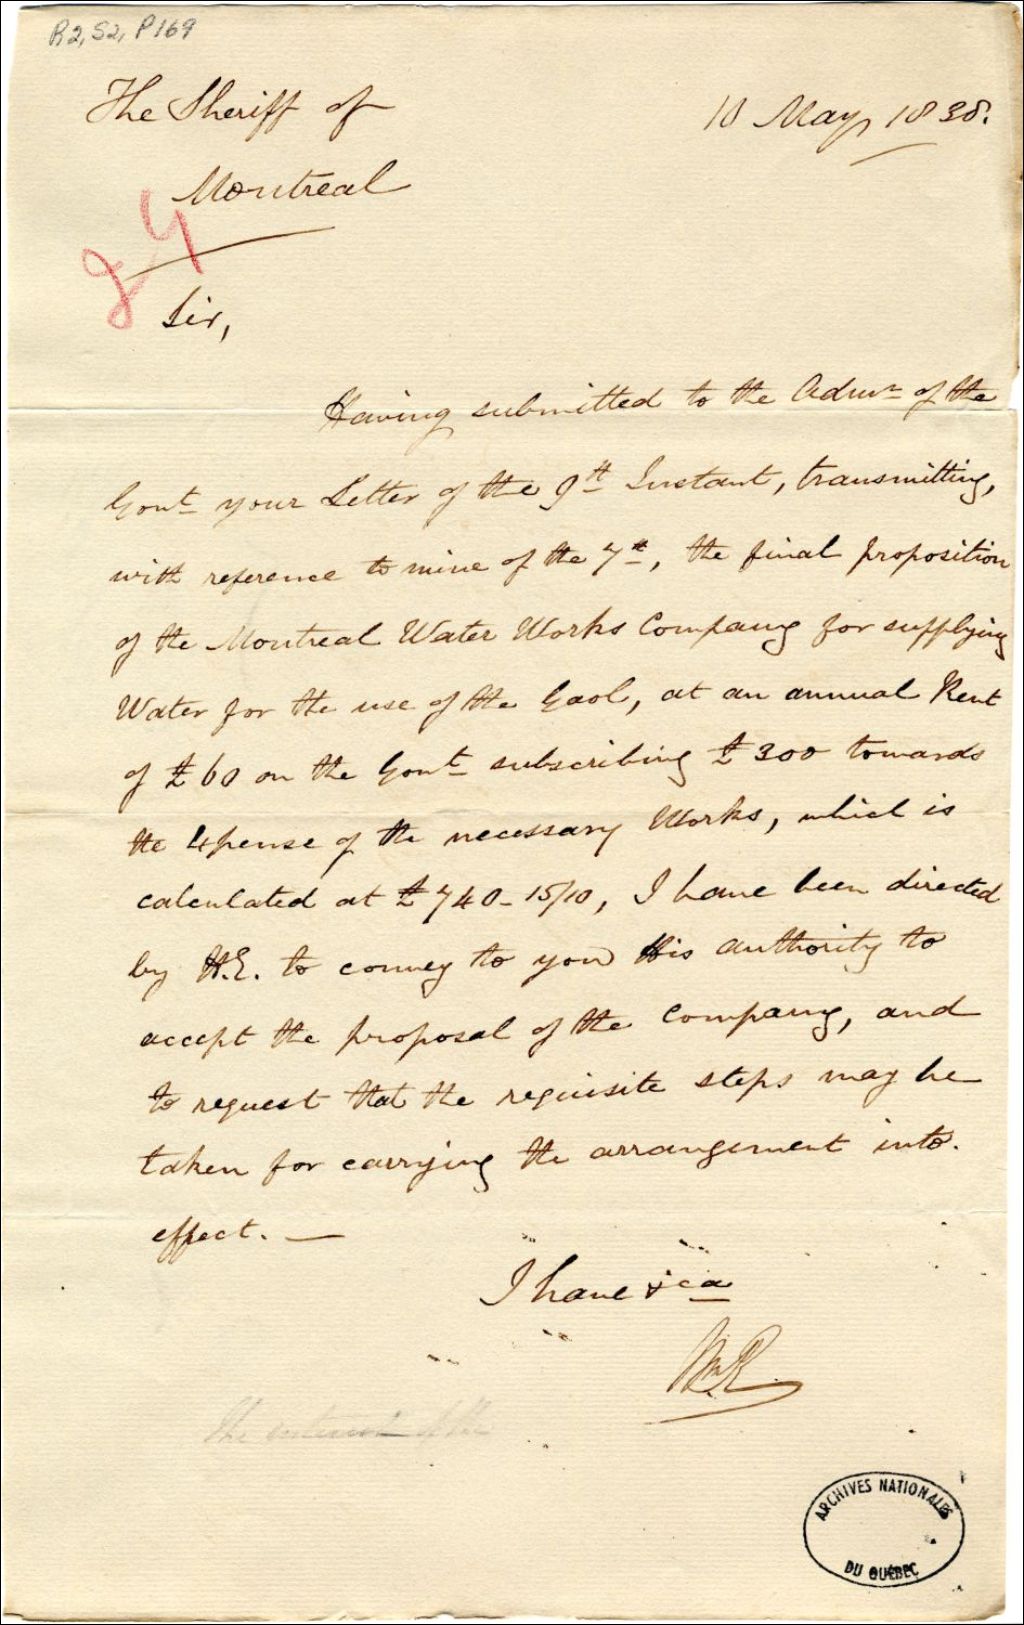 R2, S2, P169
The Sheriff of
10 May 1838.
Montreal
Sir,
Having submitted to the Admr of the
Govt your Letter of the 9th Instant, transmitting,
with reference to mine of the 7th, the final proposition
of the Montreal Water Works Company for supplying
Water for the use of the Gaol, at an annual Rent
of £60 on the Govt subscribing £300 towards
the Expense of the necessary Works, which is
calculated at £740-15/10, I have been directed
by H.E. to convey to you His authority to
accept the proposal of the Company, and
to request that the requisite steps may be
taken for carrying the arrangement into.
effect. —
I have &ca
The of the
ARCHIVES NATIONALES
DU QUÉBEC